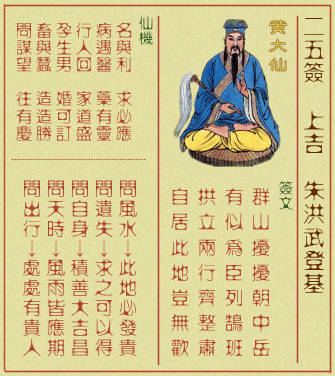 二五簽 上吉 朱洪武登基
黄大仙
簽文
群山擾擾朝中岳
有似爲臣列鵠班
拱立兩行齊整肅
自居此地豈無歡
仙機
名與利 求必應
病遇醫 藥有靈
行人回 家道盛
孕生男 婚可訂
畜與蠶 造造勝
問謀望 往有慶
問風水↓此地必發貴
問遺失↓求之可以得
問自身↓積善大吉昌
問天時↓風雨皆應期
問出行↓處處有貴人